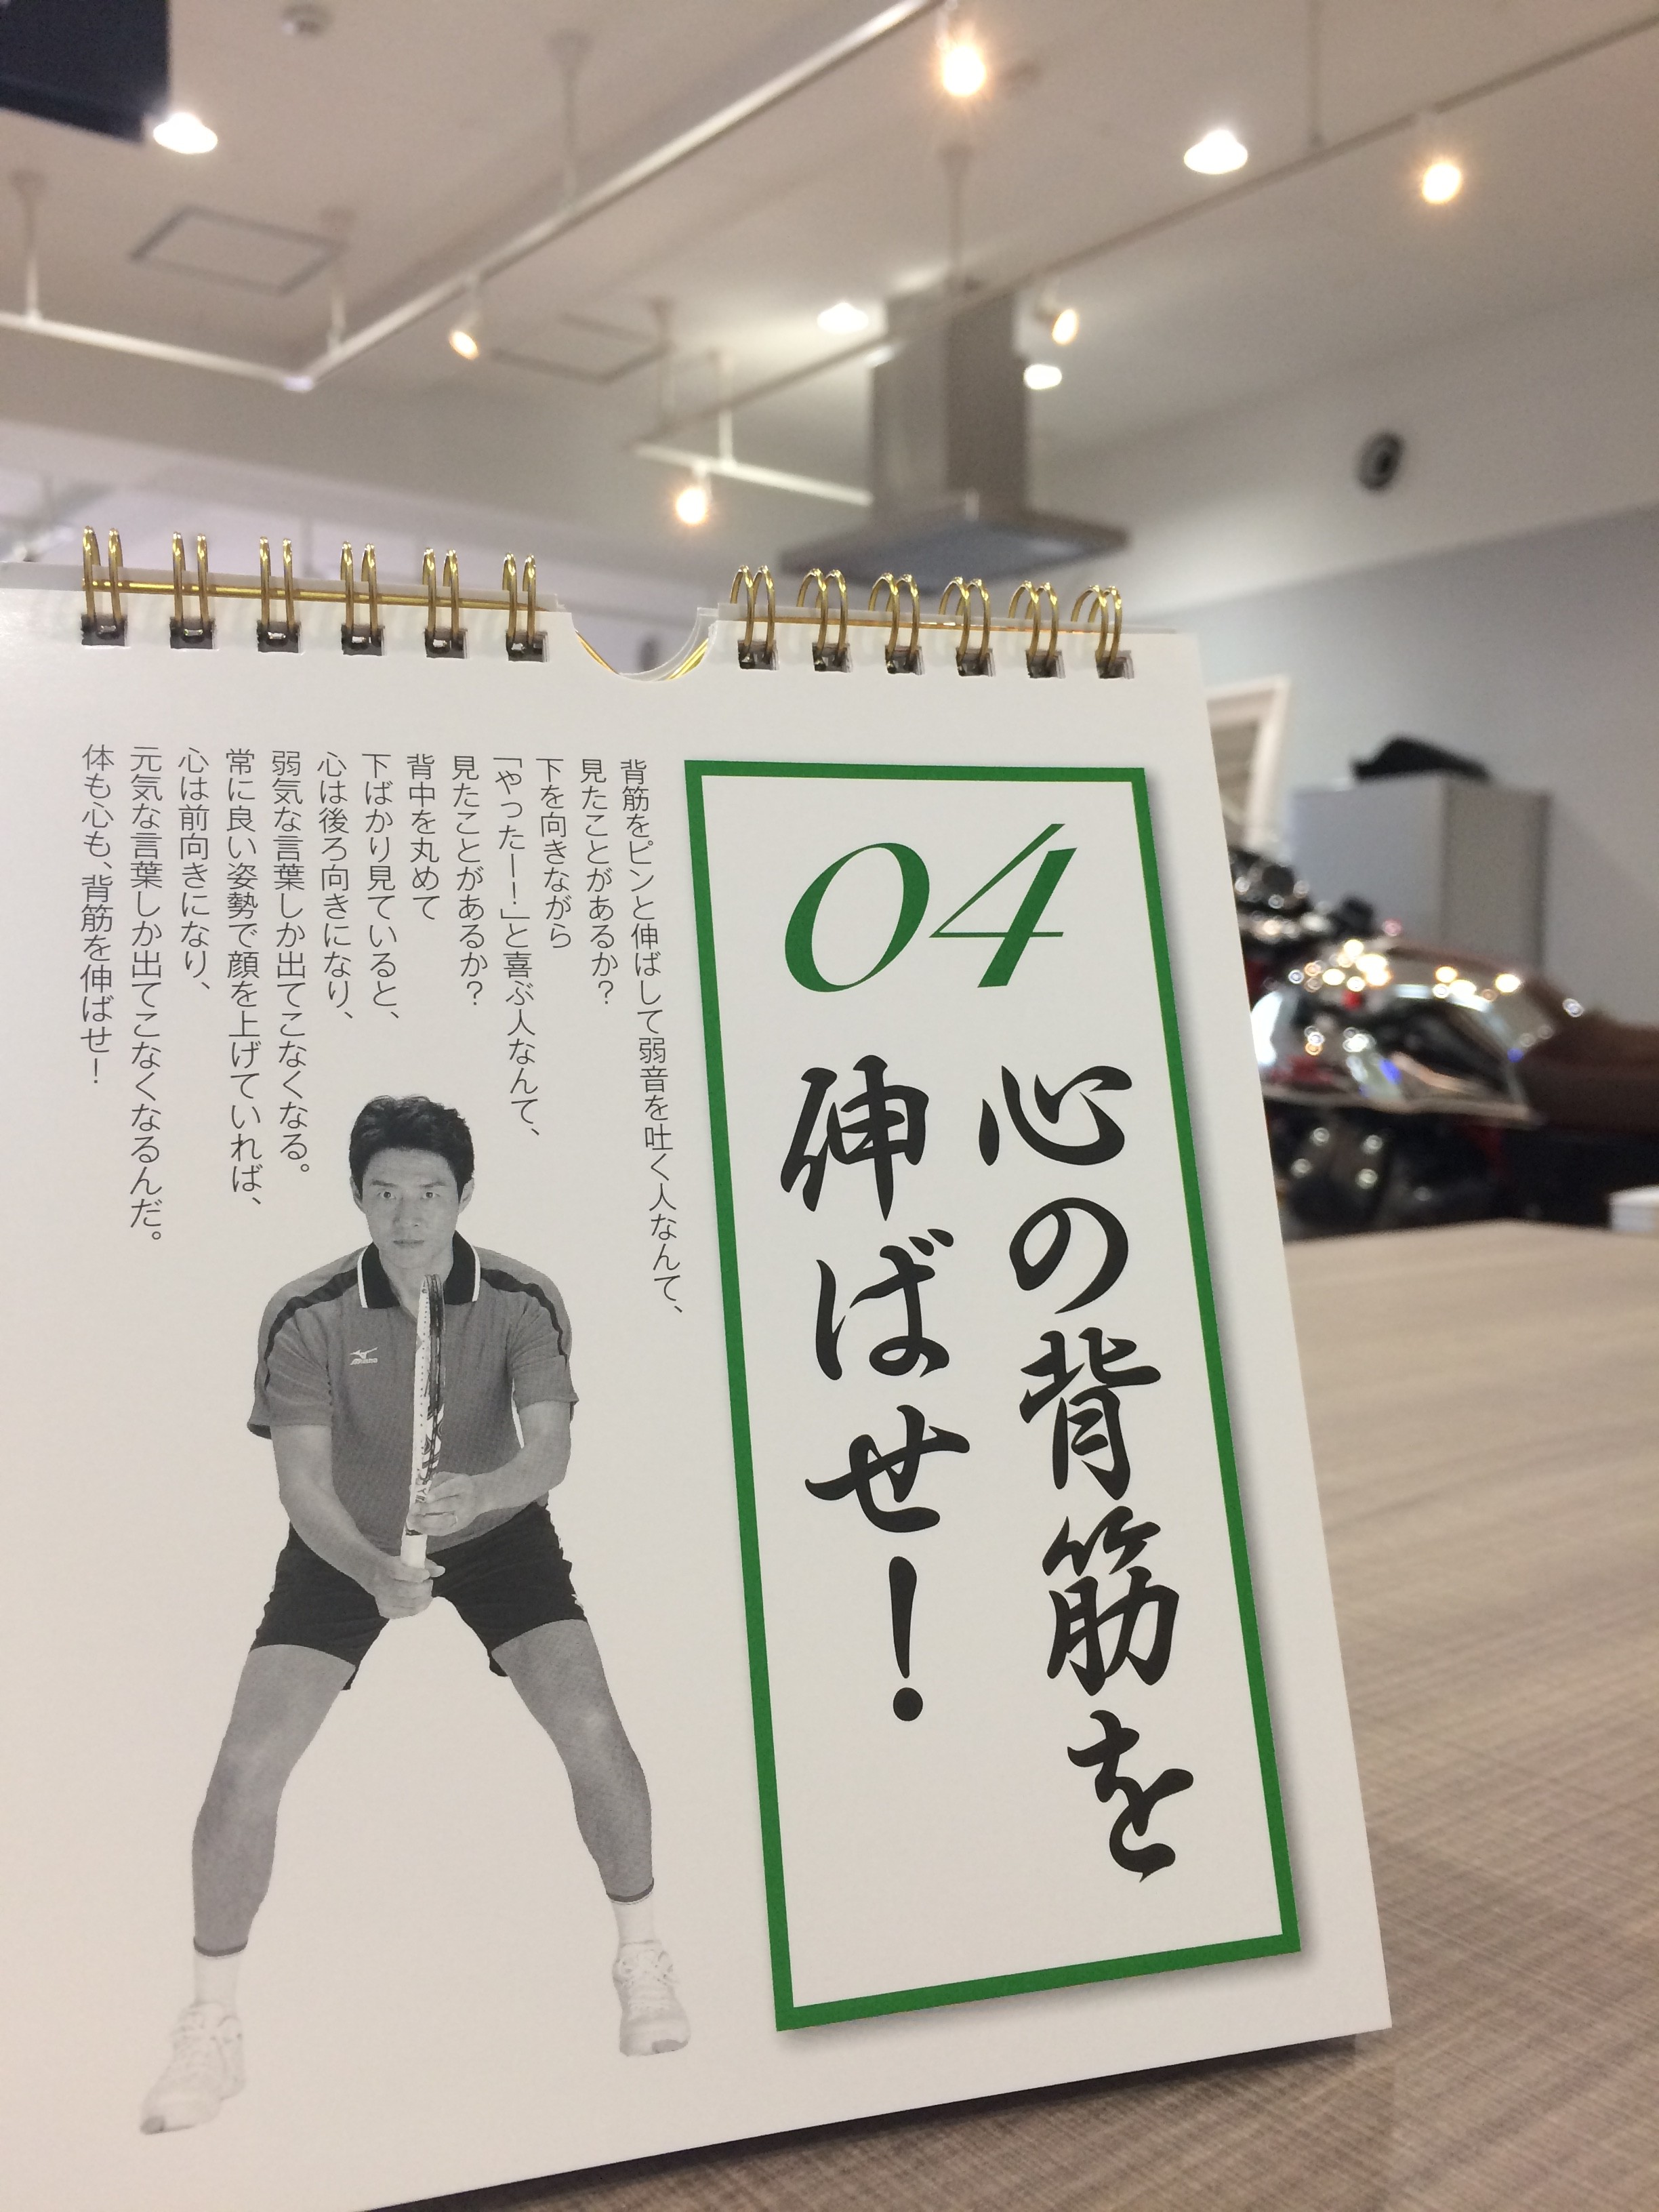 04
心の背筋を
伸ばせ！
背筋をピンと伸ばして弱音を吐く人なんて、
見たことがあるか？
下を向きながら
「やったー！」と喜ぶ人なんて、
見たことがあるか？
背中を丸めて
下ばかり見ていると、
心は後ろ向きになり、
弱気な言葉しか出てこなくなる。
常に良い姿勢で顔を上げていれば、
心は前向きになり、
元気な言葉しか出てこなくなるんだ。
体も心も、背筋を伸ばせ！